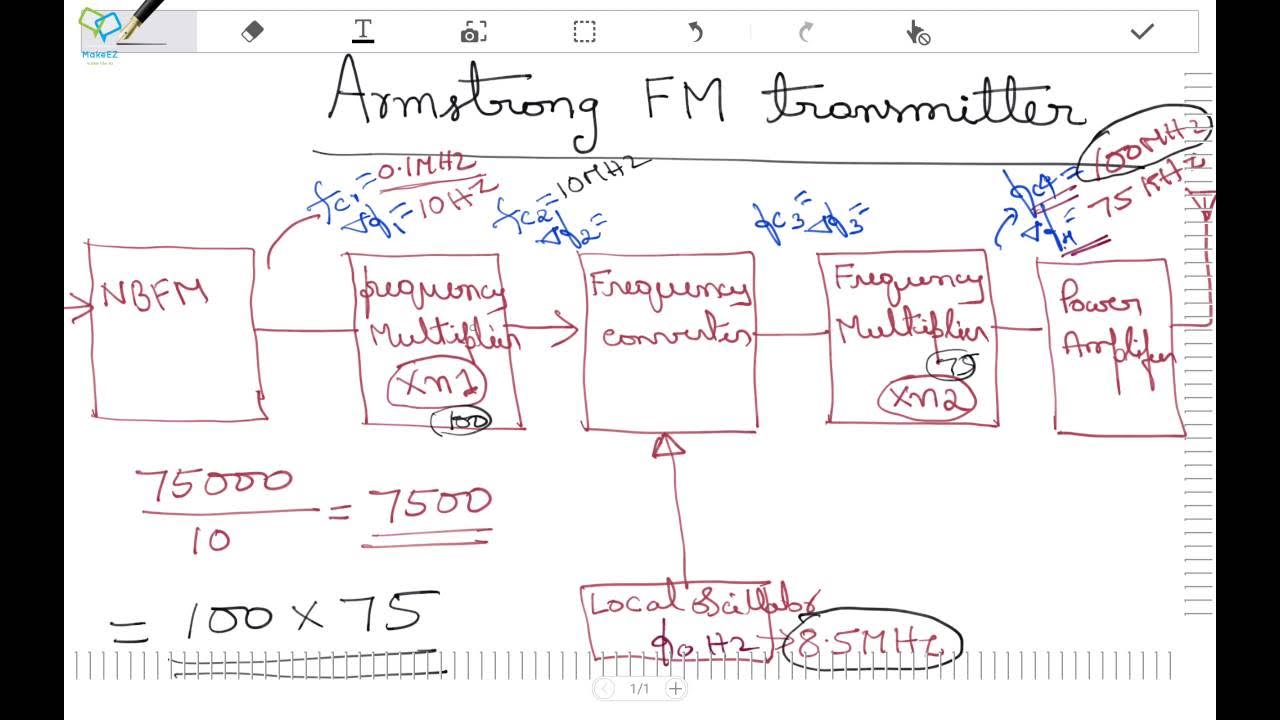 T
MakeEZ
Armstrong FM transmitter
fc1 = 0.1MHz
Δf1 = 10Hz
fc2 = 10MHz
Δf2 =
fc3 = Δf3 =
fc4 = 100MHz
Δf4 = 75KHz
NBFM
frequency
Multiplier
Xn1
100
Frequency
converter
Frequency
Multiplier
75
Xn2
Power
Amplifier
75000
10
= 7500
= 100 x 75
Local oscillator
fo Hz → 8.5MHz
1/1